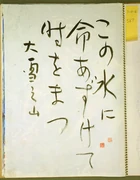 この水に
命あずけて
時をまつ
大雪之山